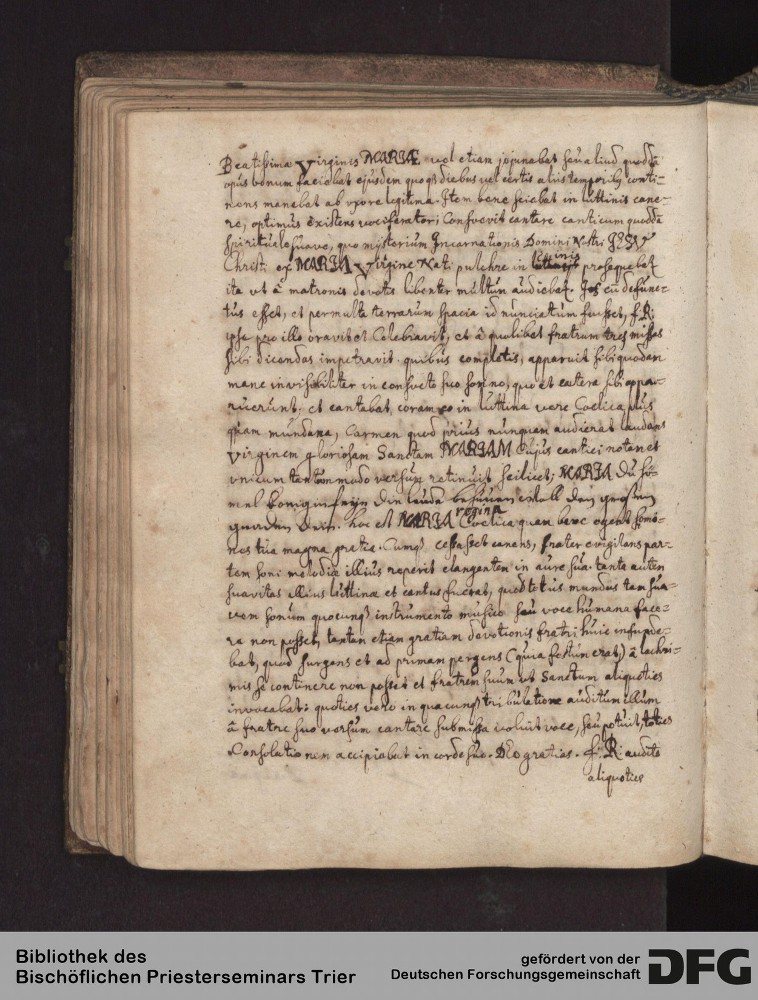 Beatissima Virginis MARIÆ vel etiam jejunabat seu aliud quoddā
opus bonum faciebat ejusdem quoqȝ diebus vel certis aliis temporibȝ conti-
nens manebat ab uxore legitima. Item bene sciebat in luttinis cane-
re, optimus existens vociferator; Consuevit cantare canticum quoddā
spirituale suave, quo mysterium Incarnationis Domini Nostri JESV
Christi ex MARIA Virgine Nati pulchre in luttinis prosequebat
ita ut â matronis devotis libenter multum audiebat. Is cū defunc-
tus esset, et per multa terrarum spacia id nunciatum fuisset, f. R:
ipse pro illo oravit et Celebravit, et â quolibet fratrum tres missas
sibi dicendas impetravit. quibus completis, apparuit sibi quodam
mane invisibiliter in consueto suo somno, quo et cætera sibi appa-
ruerunt, et cantabat coram eo in luttina vere Coelica plus
quam mundana, Carmen quod prius nunquam audierat laudans
Virginem gloriosam Sanctam MARIAM Cujus cantici notam et
unicum tantummodo versum retinuit scilicet; MARIA Du hö-
mel Konigin freijn Din leuda
gnaden Dein. hoc est MARIA Coelica regina quam bene egent homi-
nes tua magna gratia. Cumqȝ cessasset canens, frater evigilans par-
tem soni melodiæ illius reperit clangentem in aure sua. tanta autem
suavitas illius luttinæ et cantus fuerat, quod totus mundus tam sua-
vem sonum quocunqȝ instrumento musico seu voce humana face-
re non posset, tantam etiam gratiam devotionis fratri huic infunde-
bat, quod surgens et ad primam pergens (quia festum erat) â lachri-
mis se continere non posset et fratrem suum ut Sanctum aliquoties
invocabat: quoties vero in quacunqȝ tribulatione auditum illum
â fratre suo versum cantare submissa voluit voce, seu potuit, toties
Consolationem accipiebat in corde suo. DEo gratias. f. R: audito
aliquoties
Bibliothek des
Bischöflichen Priesterseminars Trier
gefördert von der
Deutschen Forschungsgemeinschaft
DFG